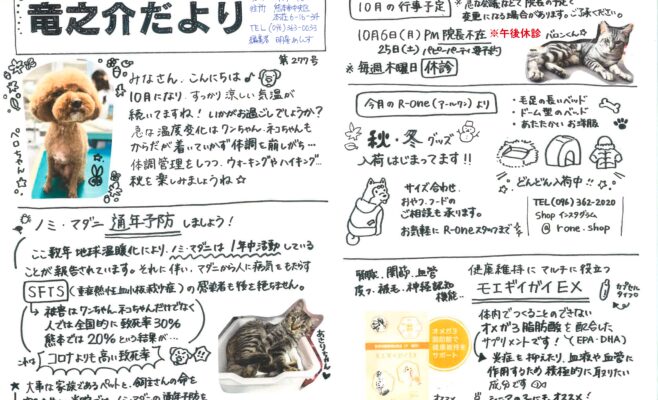 竜之介だより
住所 熊本市中央区
本荘6-16-34
TEL (096)363-0033
第277号
みなさん、こんにちは
10月になり、すっかり涼しい気温が
続いてますね！いかがお過ごしでしょうか？
急な温度変化はワンちゃん、ネコちゃんも
からだが着いていかず体調を崩しがち…
体調管理をしつつ、ウォーキングやハイキング…
秋を楽しみましょうね☆
ノミ・マダニ 通年予防 しましょう！
ここ数年 地球温暖化により、ノミ・マダニは1年中活動している
ことが報告されています。それに伴い、マダニから人に病気をもたらす
SFTS (重症熱性血小板減少症) の感染者も後を絶ちません。
被害はワンちゃん、ネコちゃんだけでなく
人では全国的に致死率30%
熊本では20%という結果が…
これは コロナよりも高い致死率
あさりちゃん
★大事な家族であるペットと、飼主さんの命を
10月の行事予定
※急な会議などで院長の予定
変更になる場合があります。ご了承ください。
10月6日(月)PM 院長不在 ※午後休診
バロンくん
25日(土) パピーパーティ(要予約)
※毎週木曜日 休診
今月の R-One(アールワン)より
秋・冬 グッズ
入荷はじまってます!!
・毛足の長いベッド
・ドーム型のベッド
・あたたかい お洋服
どんどん入荷中!!
サイズ合わせ、
おやつ、フードの
ご相談も承ります。
お気軽に R-Oneスタッフまで
TEL(096)362-2020
Shop インスタグラム
@ rone.shop
関節、血管
皮フ、被毛、神経認知
機能…
健康維持に マルチに役立つ
モエギイガイEX
カプセル
タイプ
オメガ3
脂肪酸で
健康維持を
サポート
モエギイガイEX
体内でつくることのできない
オメガ3脂肪酸を配合した
サプリメントです！(EPA・DHA)
炎症を抑えたり、血液や血管に
作用するため積極的に取りたい
成分です
オススメ
シニアの子にもオススメ！